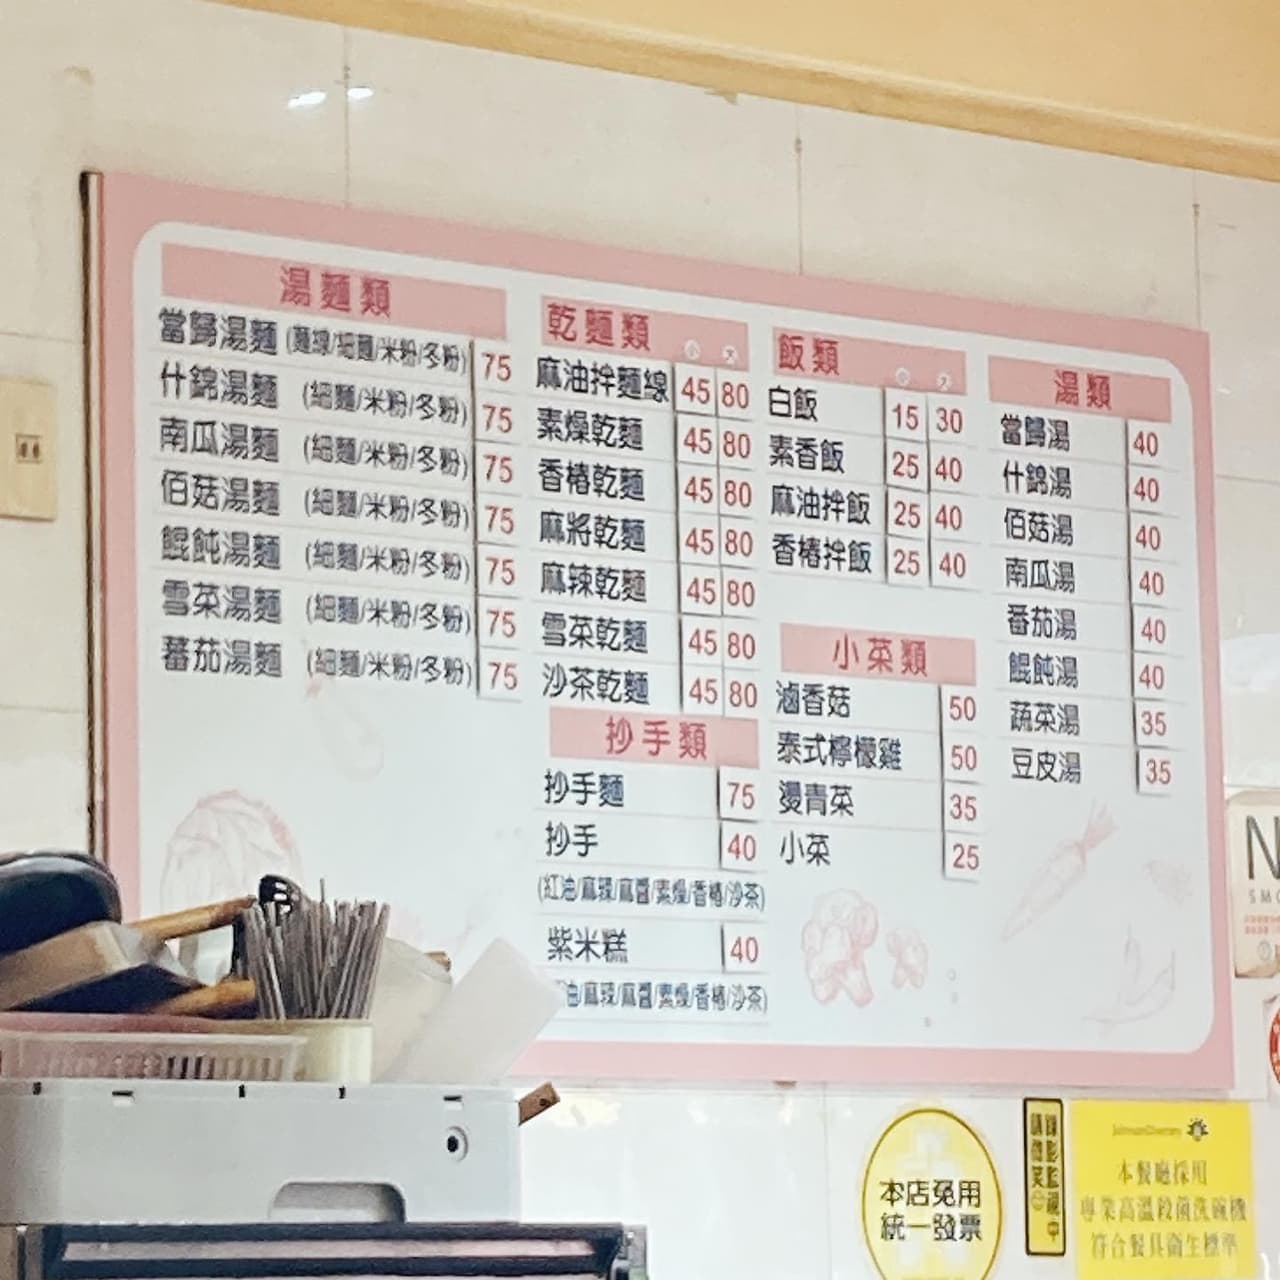 湯麵類
當歸湯麵 (麵線/細麵/米粉/冬粉) 75
什錦湯麵 (細麵/米粉/冬粉) 75
南瓜湯麵 (細麵/米粉/冬粉) 75
佰菇湯麵 (細麵/米粉/冬粉) 75
餛飩湯麵 (細麵/米粉/冬粉) 75
雪菜湯麵 (細麵/米粉/冬粉) 75
蕃茄湯麵 (細麵/米粉/冬粉) 75
乾麵類 小 大
麻油拌麵線 45 80
素燥乾麵 45 80
香椿乾麵 45 80
麻將乾麵 45 80
麻辣乾麵 45 80
雪菜乾麵 45 80
沙茶乾麵 45 80
抄手類
抄手麵 75
抄手 40
(紅油/麻辣/麻醬/素燥/香椿/沙茶)
紫米糕 40
油/麻辣/麻醬/素燥/香椿/沙茶)
飯類 小 大
白飯 15 30
素香飯 25 40
麻油拌飯 25 40
香椿拌飯 25 40
小菜類
滷香菇 50
泰式檸檬雞 50
燙青菜 35
小菜 25
湯類
當歸湯 40
什錦湯 40
佰菇湯 40
南瓜湯 40
番茄湯 40
餛飩湯 40
蔬菜湯 35
豆皮湯 35
本店免用
統一發票
錄影監視中
請微笑
本餐廳採用
專業高溫殺菌洗碗機
符合餐具衛生標準